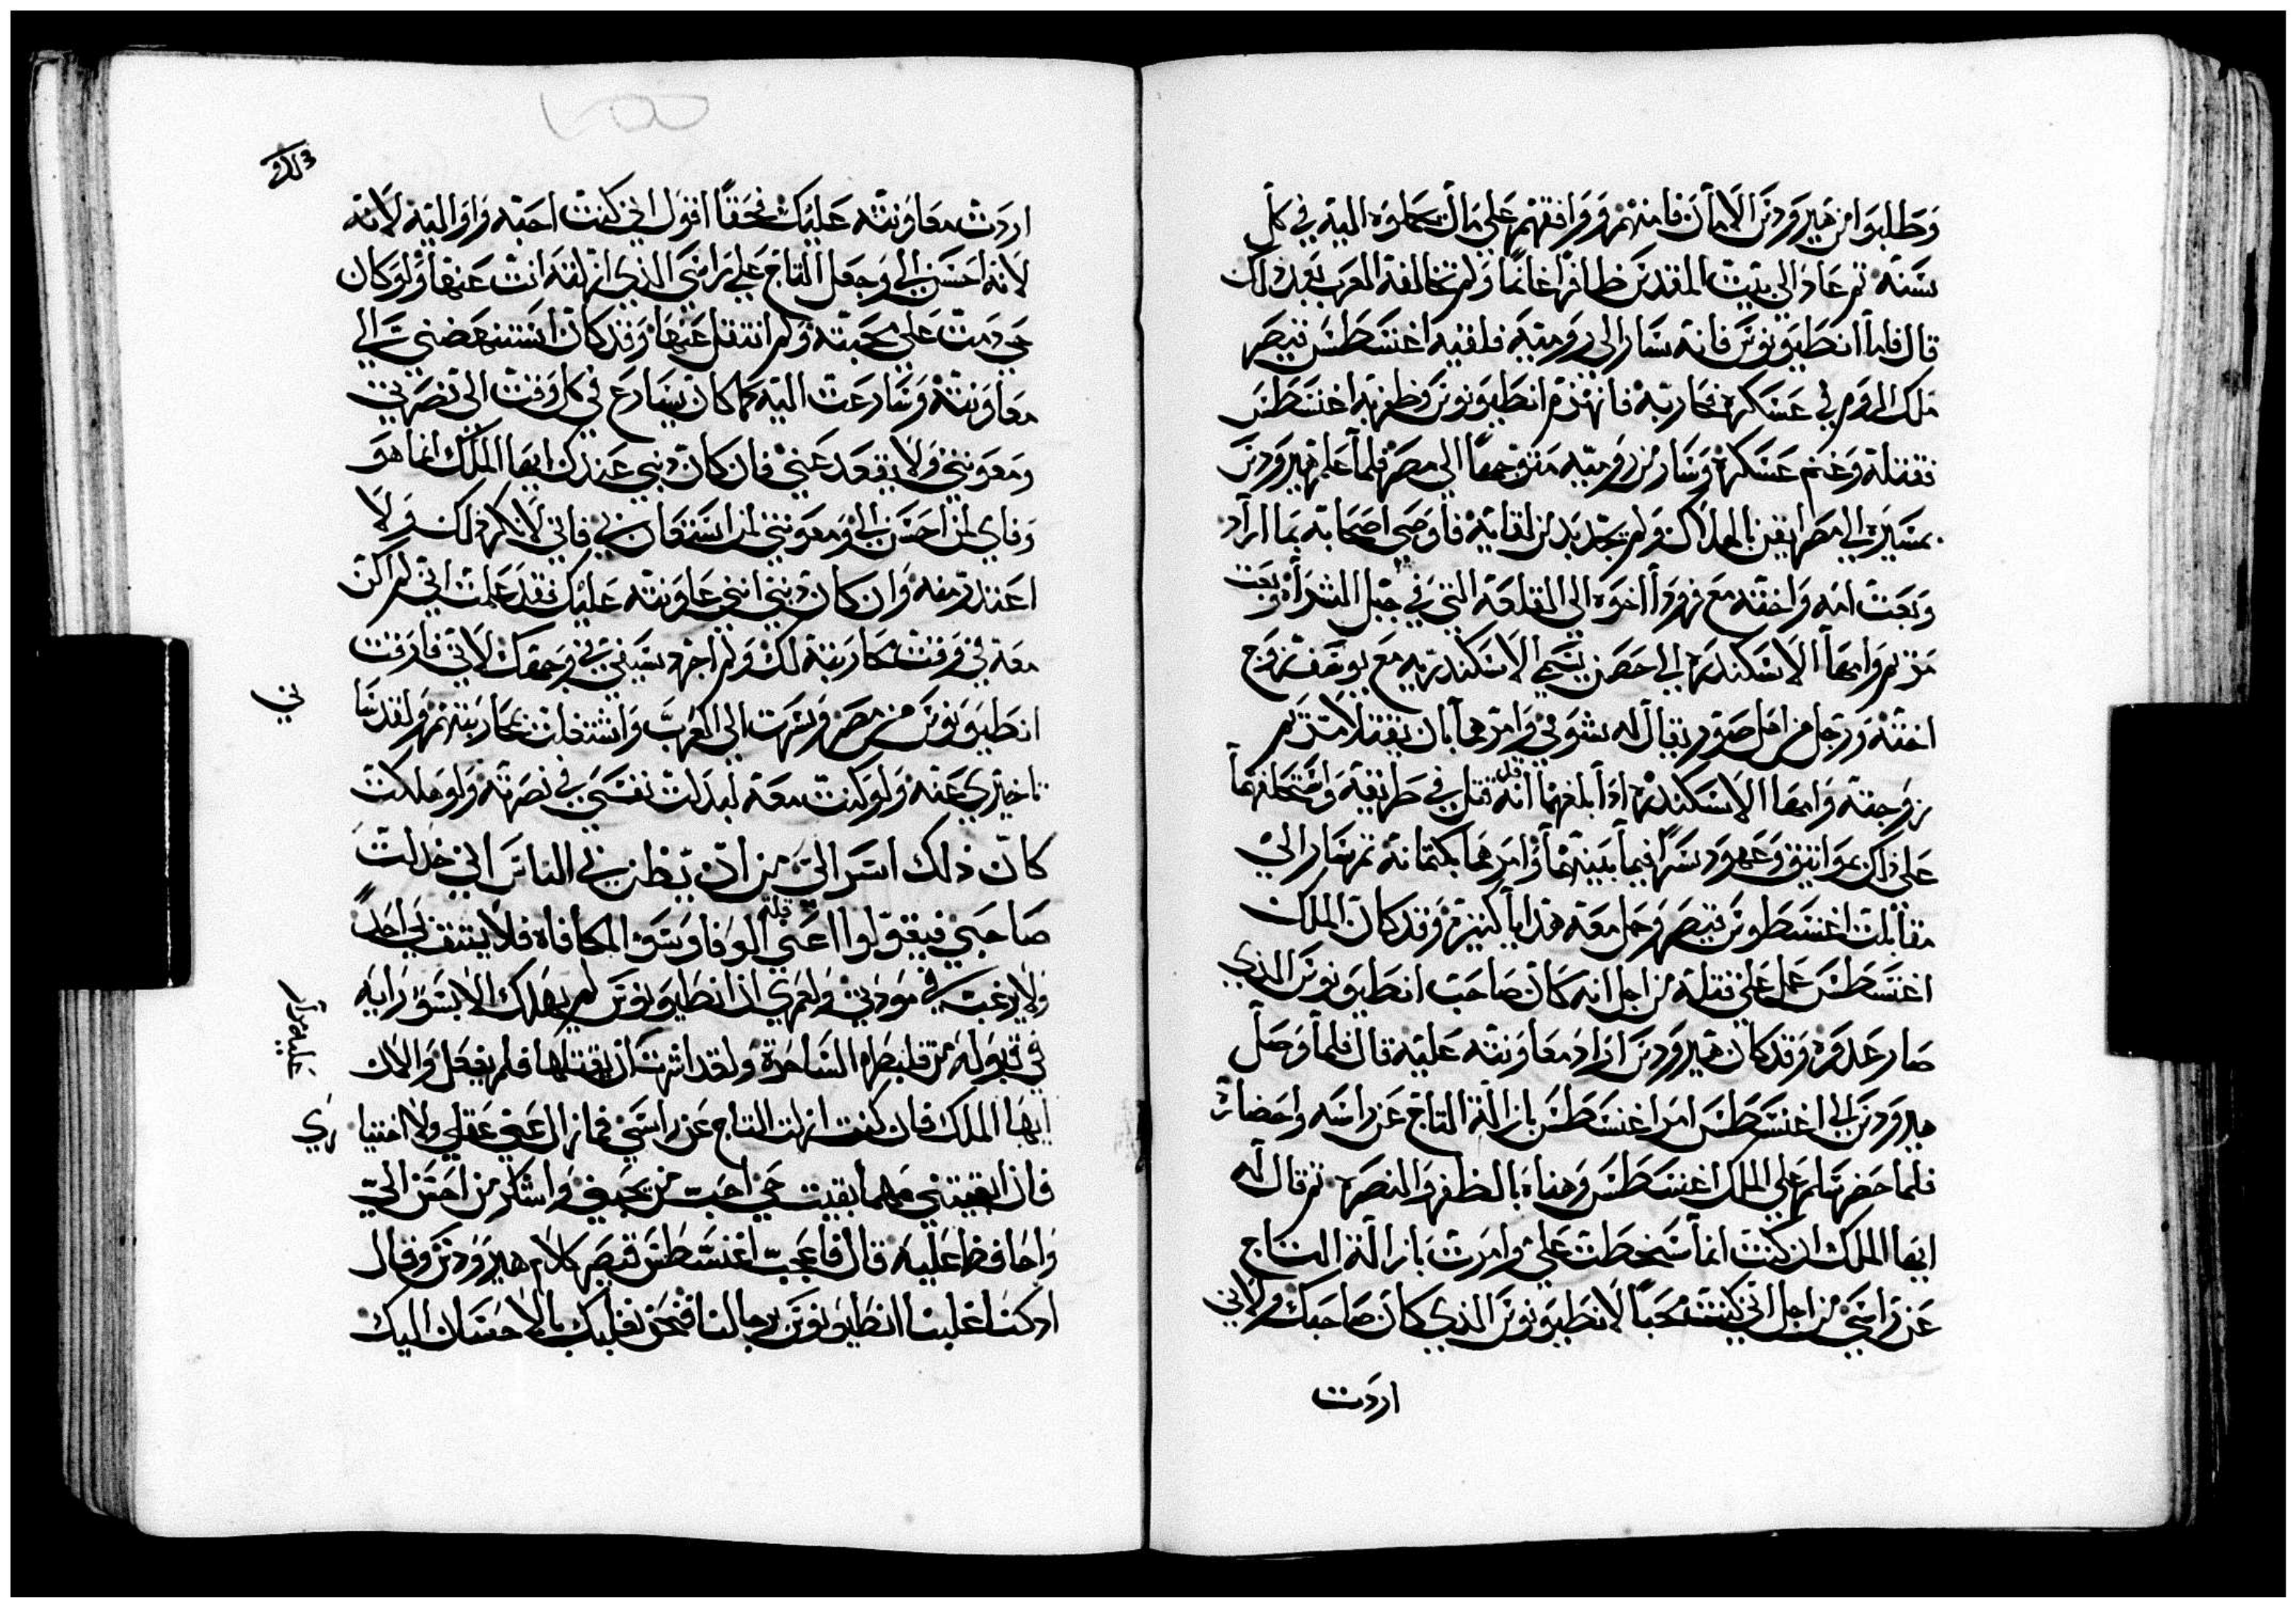 وطلبوا من هيرودس الامان فامنهم ووافقهم على مال يحملوه اليه في كل
سنة ثم عاد الى بيت المقدس ظافرا غانما ولم تخالفه العرب بعد ذلك
قال فاما انطيونوس فانه سار الى رومية فلقيه اغسطس قيصر
ملك الروم في عسكره فحاربه فانهزم انطيونوس وظفر به اغسطس
فقتله وغنم عسكره وسار من رومية متوجها الى مصر فلما علم هيرودس
بمسيره الى مصر ايقن بالهلاك ولم يجد بد من لقايه فاوصى اصحابه بما اراد
وبعث امه واخته مع فرودا اخوه الى القلعة التي في جبل الشراه وبعث
مريم وامها الاسكندره الى حصن يسمى الاسكندريه مع يوسف زوج
اخته ورجل من اهل صور يقال له سومي وامرهما بان يقتلا مريم
زوجته وامها الاسكندره اذا بلغهما انه قد قتل في طريقه واستحلفهما
على ذلك بمواثيق وعهود سرا فيما بينهما وامرهما بكتمانه ثم سار الى
مقابلت اغسطوس قيصر وحمل معه هدايا كثيرة وقد كان الملك
اغسطس عمل على قتله من اجل انه كان صاحب انطيونوس الذي
صار عدوه وقد كان هيرودس اراد معاونته عليه قال فلما وصل
هيرودس الى اغسطس امر اغسطس بازالة التاج عن راسه واحضاره
فلما حضر سلم على الملك اغسطس وهناه بالظفر والنصره ثم قال له
ايها الملك ان كنت انما سخطت علي وامرت بازالة التاج
عن راسي من اجل اني كنت محبا لانطيونوس الذي كان صاحبك ولاني
اردت
اردت معاونته عليك فحقا اقول اني كنت احبه واواليه لانه
لانه احسن الي وجعل التاج على راسي الذي ازلته انت عنها ولو كان
حي دمت على محبته ولم انتقل عنها وقد كان استنهضني الى
معاونته وسارعت اليه كما كان يسارع في كل وقت الى نصرتي
ومعونتي ولا يقعد عني فان كان ذنبي عندك ايها الملك انما هو
وفاي لمن احسن الي ومعونتي لمن استعان بي فاني لا انكر ذلك ولا
اعتذر منه وان كان ذنبي انني عاونته عليك فقد علمت اني لم اكن
معه في وقت محاربته لك ولم اجرد سيفي في وجهك لاني فارقت
انطيونوس من مصر وسرت الى العرب واشتغلت بمحاربتهم ولقد سا
ني
تاخيري عنه ولو كنت معه لبذلت نفسي في نصرته ولو هلكت
كان ذلك اسر الي من ان يظن بي الناس اني خذلت
صاحبي فيقولوا اعني قلة الوفا وسو المكافاه فلا يثق بي احد
ولا يرغب في مودتي ولعمري ان انطيونوس لم يهلك الا بسو رايه
في قبوله من قلبطره الساحرة ولقد اشرت عليه مرار ان يقتلها فلم يفعل والان
ايها الملك فان كنت ازلت التاج عن راسي فما زال عني عقلي ولا اختيا
ري
فان ابقيتني مهما بقيت حي احب من يحبني واشكر من احسن الي
واحافظ عليه قال فاعجب اغسطس قيصر كلام هيرودس وقال
ان كنا غلبنا انطيونوس برجالنا فنحن نغلبك بالاحسان اليك